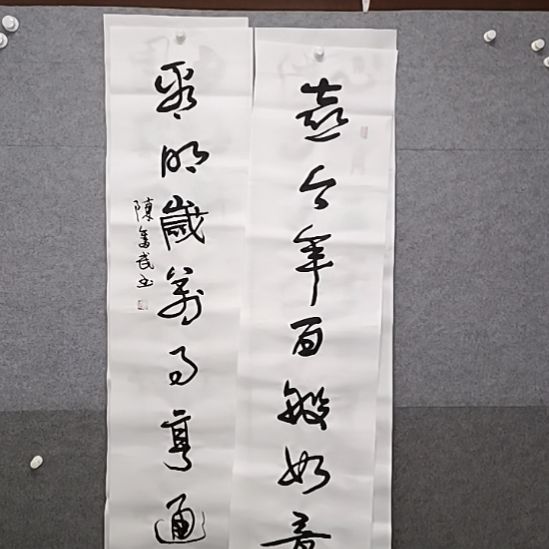 喜今年百般如意
看明歲萬事亨通
陳奮武書